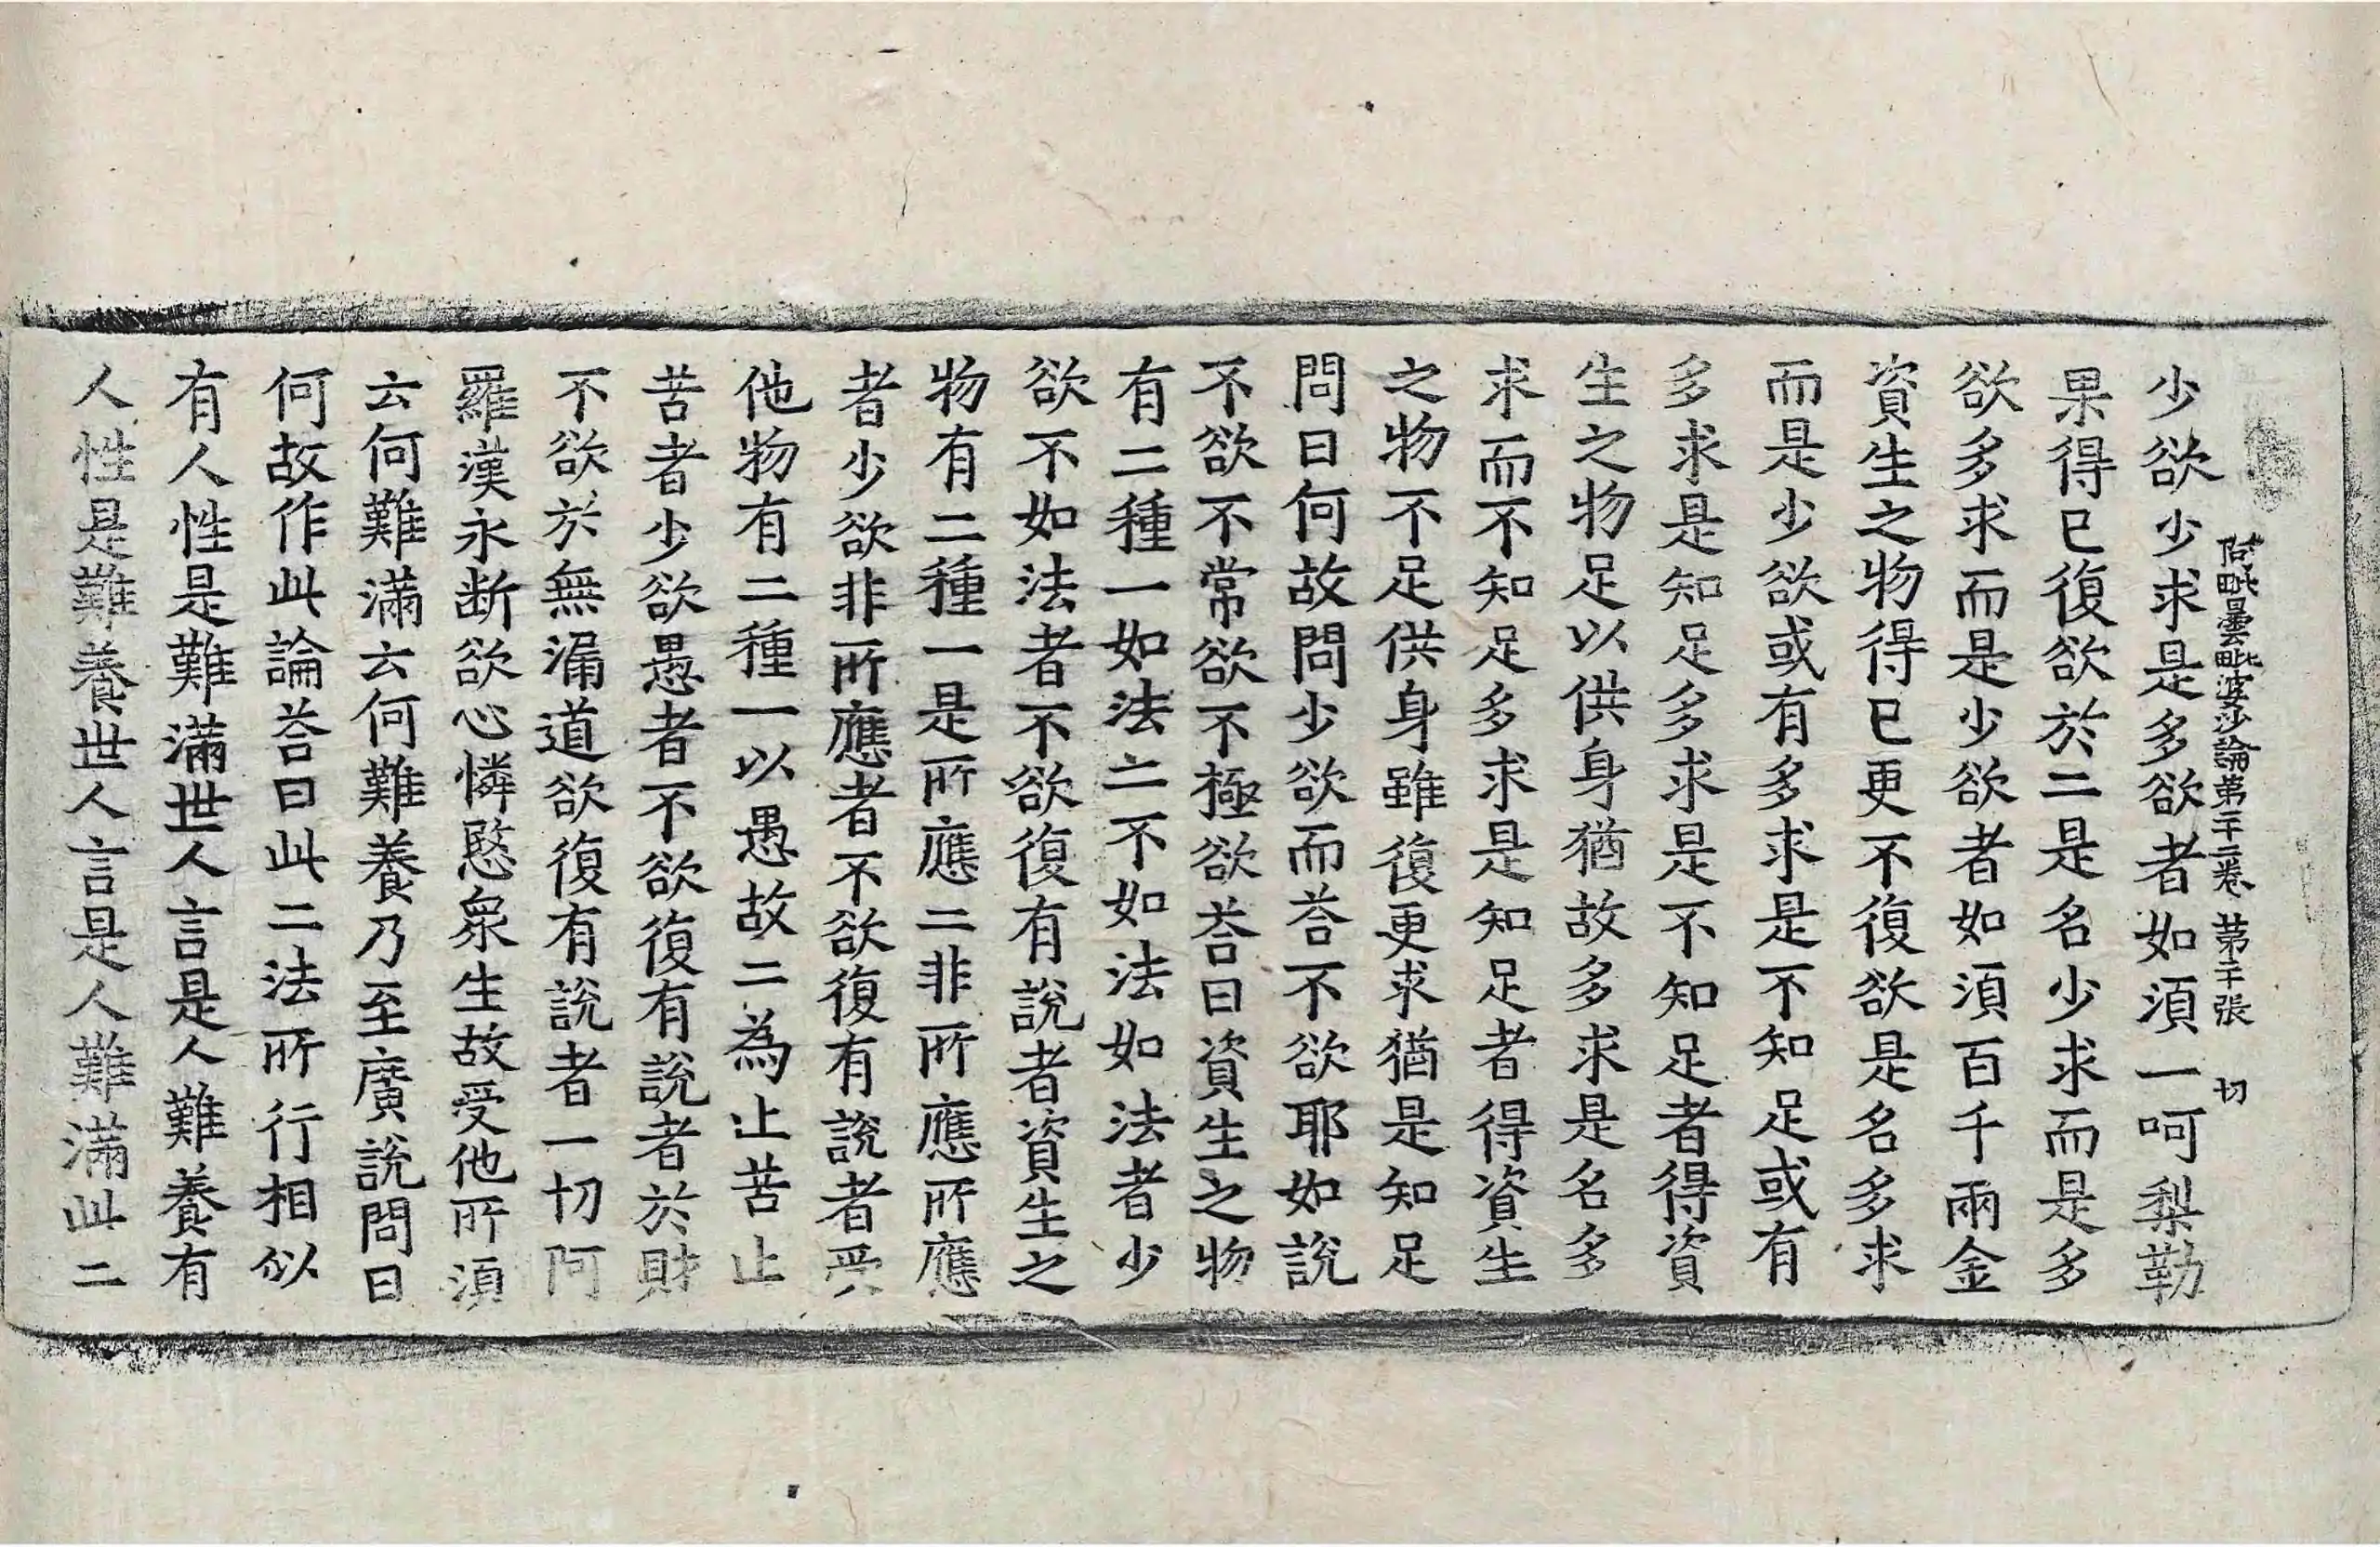 阿毗曇毗婆沙論第二十二卷 第二十張 切
少欲少求是多欲者如湏一呵梨勒
果得已復欲於二是名少求而是多
欲多求而是少欲者如湏百千兩金
資生之物得已更不復欲是名多求
而是少欲或有多求是不知足或有
多求是知足多求是不知足者得資
生之物足以供身猶故多求是名多
求而不知足多求是知足者得資生
之物不足供身雖復更求猶是知足
問曰何故問少欲而荅不欲耶如說
不欲不常欲不極欲荅曰資生之物
有二種一如法二不如法如法者少
欲不如法者不欲復有說者資生之
物有二種一是所應二非所應所應
者少欲非所應者不欲復有說者受
他物有二種一以愚故二為止苦止
苦者少欲愚者不欲復有說者於財
不欲於無漏道欲復有說者一切阿
羅漢永断欲心憐愍衆生故受他所湏
云何難滿云何難養乃至廣說問曰
何故作此論荅曰此二法所行相似
有人性是難滿世人言是人難養有
人性是難養世人言是人難滿此二